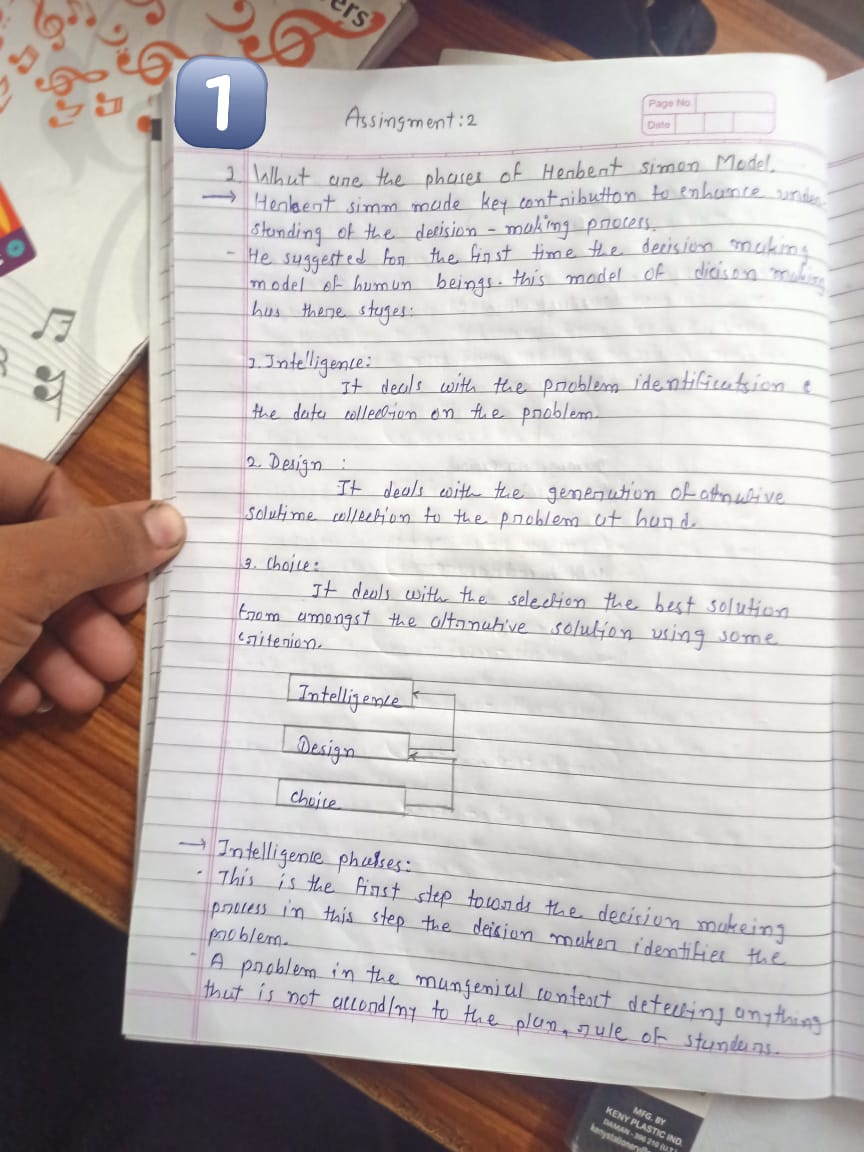 ers
1
Assingment:2
Page No
Date
1. Whut are the phases of Herbert simon Model.
→ Herbert simm made key contributton to enhance under
standing of the decision - making process.
- He suggested for the first time the decision making
model of human beings. this model of dicison making
has there stages:
1. Intelligence:
It deals with the problem identificatsion &
the data collection on the problem.
2. Design :
It deals with the generation of altnative
solutime collection to the problem at hand.
3. Choice:
It deals with the selection the best solution
from amongst the altrnative solution using some
criterion.
Intelligence
Design
choice
→ Intelligence phases:
- This is the first step towards the decision makeing
process in this step the deision maker identifies the
problem.
- A problem in the mangerial context detecting anything
that is not according to the plan, rule of standars.
MFG. BY
KENY PLASTIC IND.
DAMAN - 396 210 (U.T.)